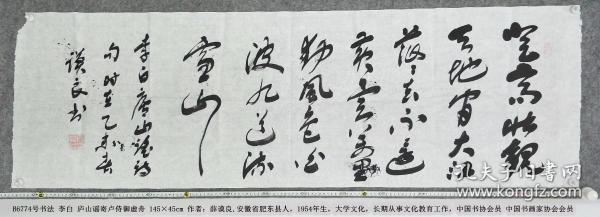 登高壮觀
天地間大江
茫々去不還
黄雲萬里
動風色白
波九道流
雪山
李白廬山謠詩
句時在乙未春
謨良书
孔夫子旧书网
B6774号书法 李白 庐山谣寄卢侍御虚舟 145×45cm 作者：薛谟良,安徽省肥东县人，1954年生，大学文化，长期从事文化教育工作，中国书协会员 中国书画家协会会员